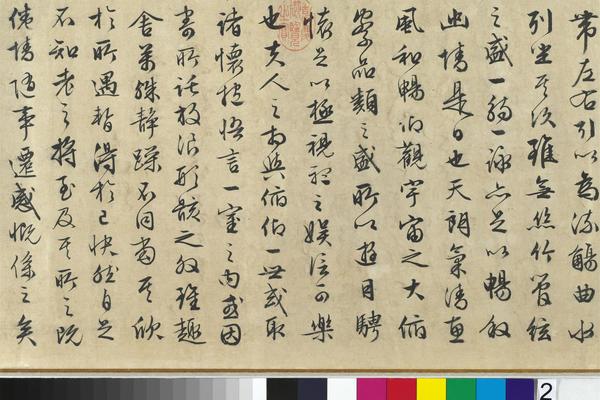 帶左右引以為流觴曲水
列坐其次雖無絲竹管絃
之盛一觴一詠亦足以暢敘
幽情是日也天朗氣清惠
風和暢仰觀宇宙之大俯
察品類之盛所以遊目騁
懷足以極視聽之娛信可樂
也夫人之相與俯仰一世或取
諸懷抱悟言一室之內或因
寄所託放浪形骸之外雖趣
舍萬殊靜躁不同當其欣
於所遇暫得於己快然自足
不知老之將至及其所之既
倦情隨事遷感慨係之矣
2